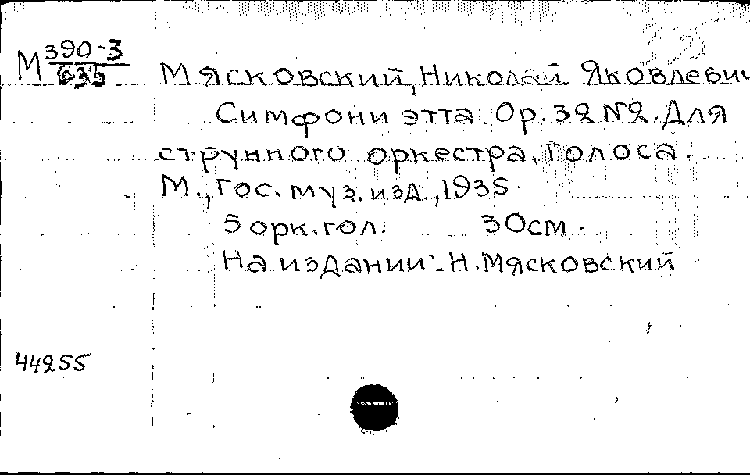 М 390-3
635
Мясковский, Николай Яковлевич
Симфониэтта. Ор. 32 №2. Для
струнного оркестра. Голоса.
М., Гос. муз. изд., 1935.
5 орк. гол. 30см.
На издании: Н. Мясковский
44255